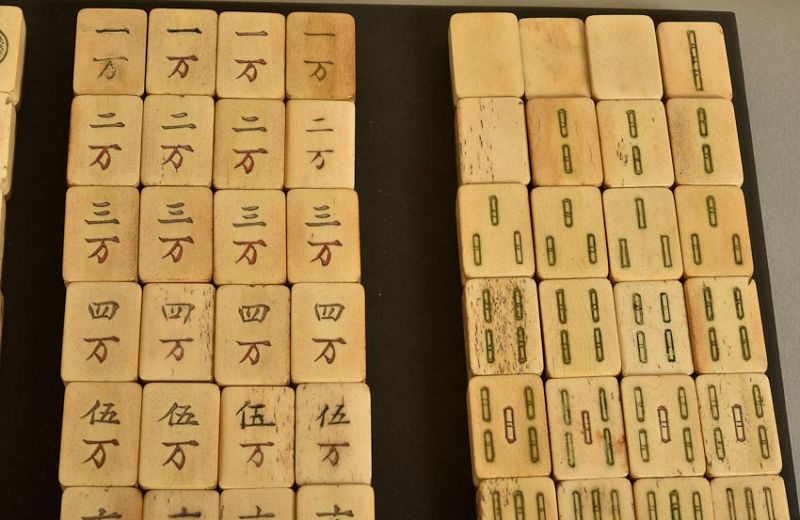 一 一 一 一
万 万 万 万
二 二 二 二
万 万 万 万
三 三 三 三
万 万 万 万
四 四 四 四
万 万 万 万
伍 伍 伍 伍
万 万 万 万